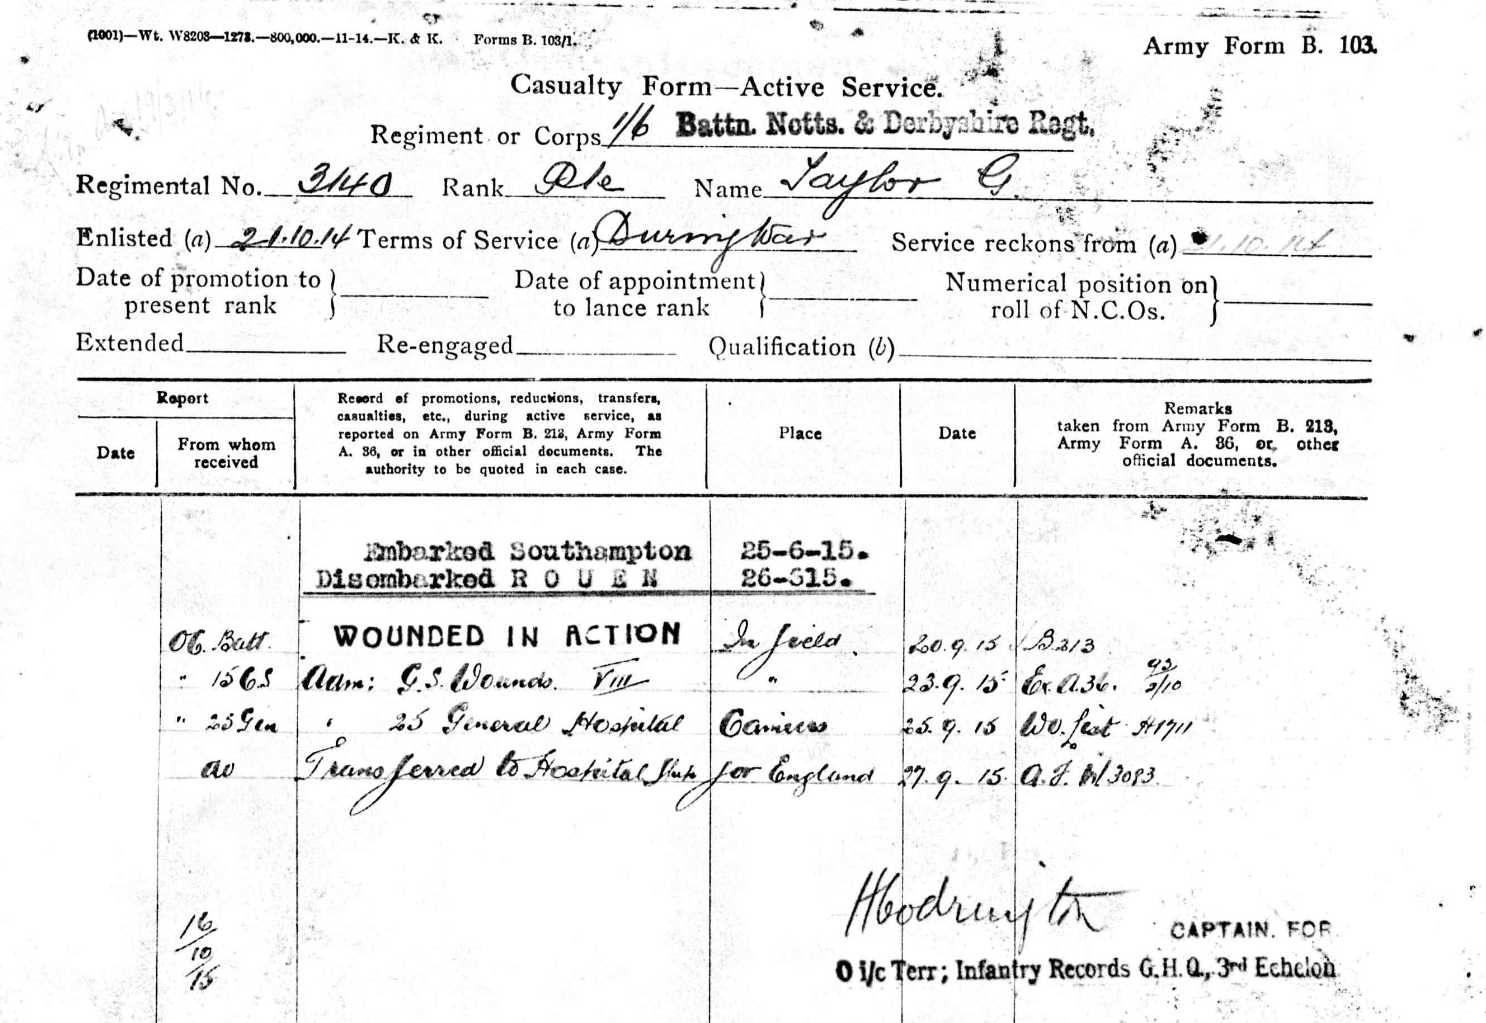 (1001)—Wt. W8203—1273.—800,000.—11-14.—K. & K. Forms B. 103/1.
Army Form B. 103.
Casualty Form—Active Service.
Regiment or Corps 1/6 Battn. Notts. & Derbyshire Regt.
Regimental No. 3140 Rank Pte Name Taylor G.
Enlisted (a) 21.10.14 Terms of Service (a) During War Service reckons from (a) 21.10.14
Date of promotion to present rank } Date of appointment to lance rank } Numerical position on roll of N.C.Os. }
Extended Re-engaged Qualification (b)
Report
Date
From whom received
Record of promotions, reductions, transfers,
casualties, etc., during active service, as
reported on Army Form B. 213, Army Form
A. 36, or in other official documents. The
authority to be quoted in each case.
Place
Date
Remarks
taken from Army Form B. 213,
Army Form A. 36, or other
official documents.
Embarked Southampton 25-6-15.
Disembarked ROUEN 26-615.
OC. Batt. WOUNDED IN ACTION In field. 20.9.15 B213
" 15 CS Adm: G.S. Wounds. VIII " 23.9.15 A36.
" 25 Gen " 25 General Hospital Camiers 25.9.15 Wo. List H1711
do Transferred to Hospital Ship for England 27.9.15. A.F. W3083.
HCodrington
CAPTAIN. FOR
O i/c Terr; Infantry Records G.H.Q., 3rd Echelon
16/10/15